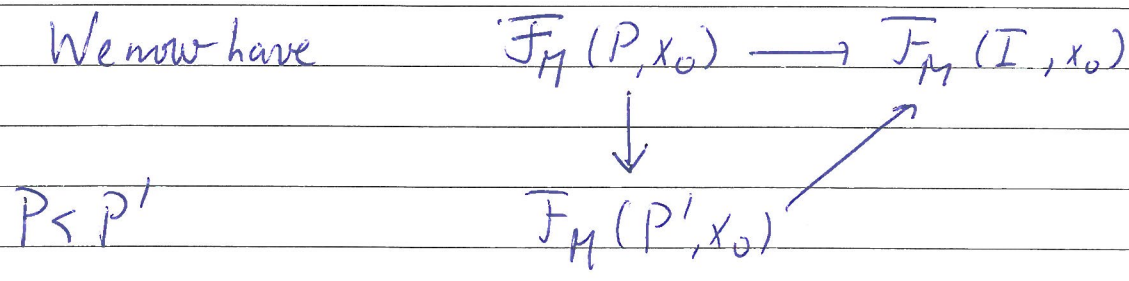 We now have F_M (P, x_0) ⟶ F_M (I, x_0)
↓ ↗
P < P' F_M (P', x_0)